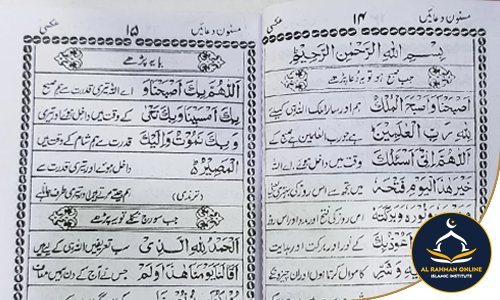 مسنون دعائیں ۱۴ عکسی
بِسْمِ اللهِ الرَّحْمٰنِ الرَّحِيْمِ
جب صبح ہو تو یہ دعا پڑھے
اَصْبَحْنَا وَاَصْبَحَ الْمُلْكُ ہم اور سارا ملک اللہ ہی کیلئے
لِلّٰهِ رَبِّ الْعٰلَمِيْنَ ہے جو رب العالمین ہے صبح کے
اَللّٰهُمَّ اِنِّيْ اَسْئَلُكَ وقت میں داخل ہوئے، اے اللہ
خَيْرَ هٰذَا الْيَوْمِ فَتْحَهٗ میں تجھ سے اس روز کی بہتری یعنی
وَنُوْرَهٗ وَبَرَكَتَهٗ اس روز کی فتح اور مدد اور اس روز
اَعُوْذُبِكَ کے نور اور برکت اور ہدایت
فِيْهِ وَشَرِّ کا سوال کرتا ہوں اور ان چیزوں کے
مسنون دعائیں ۱۵ عکسی
یا یہ پڑھے
اَللّٰهُمَّ بِكَ اَصْبَحْنَا وَ اے اللہ تیری قدرت سے ہم صبح
بِكَ اَمْسَيْنَا وَبِكَ نَحْيٰى کے وقت میں داخل ہوئے اور تیری
وَبِكَ نَمُوْتُ وَاِلَيْكَ قدرت سے ہم شام کے وقت میں
الْمَصِيْرُ داخل ہوئے اور تیری قدرت سے
(ترمذی)
جب سورج نکلے تو یہ پڑھے
اَلْحَمْدُ لِلّٰهِ الَّذِيْ سب تعریفیں اللہ ہی کے لیے ہیں
اَقَالَنَا يَوْمَنَا هٰذَا وَلَمْ جس نے آج کے دن ہمیں معاف
AL RAHMAN ONLINE
ISLAMIC INSTITUTE